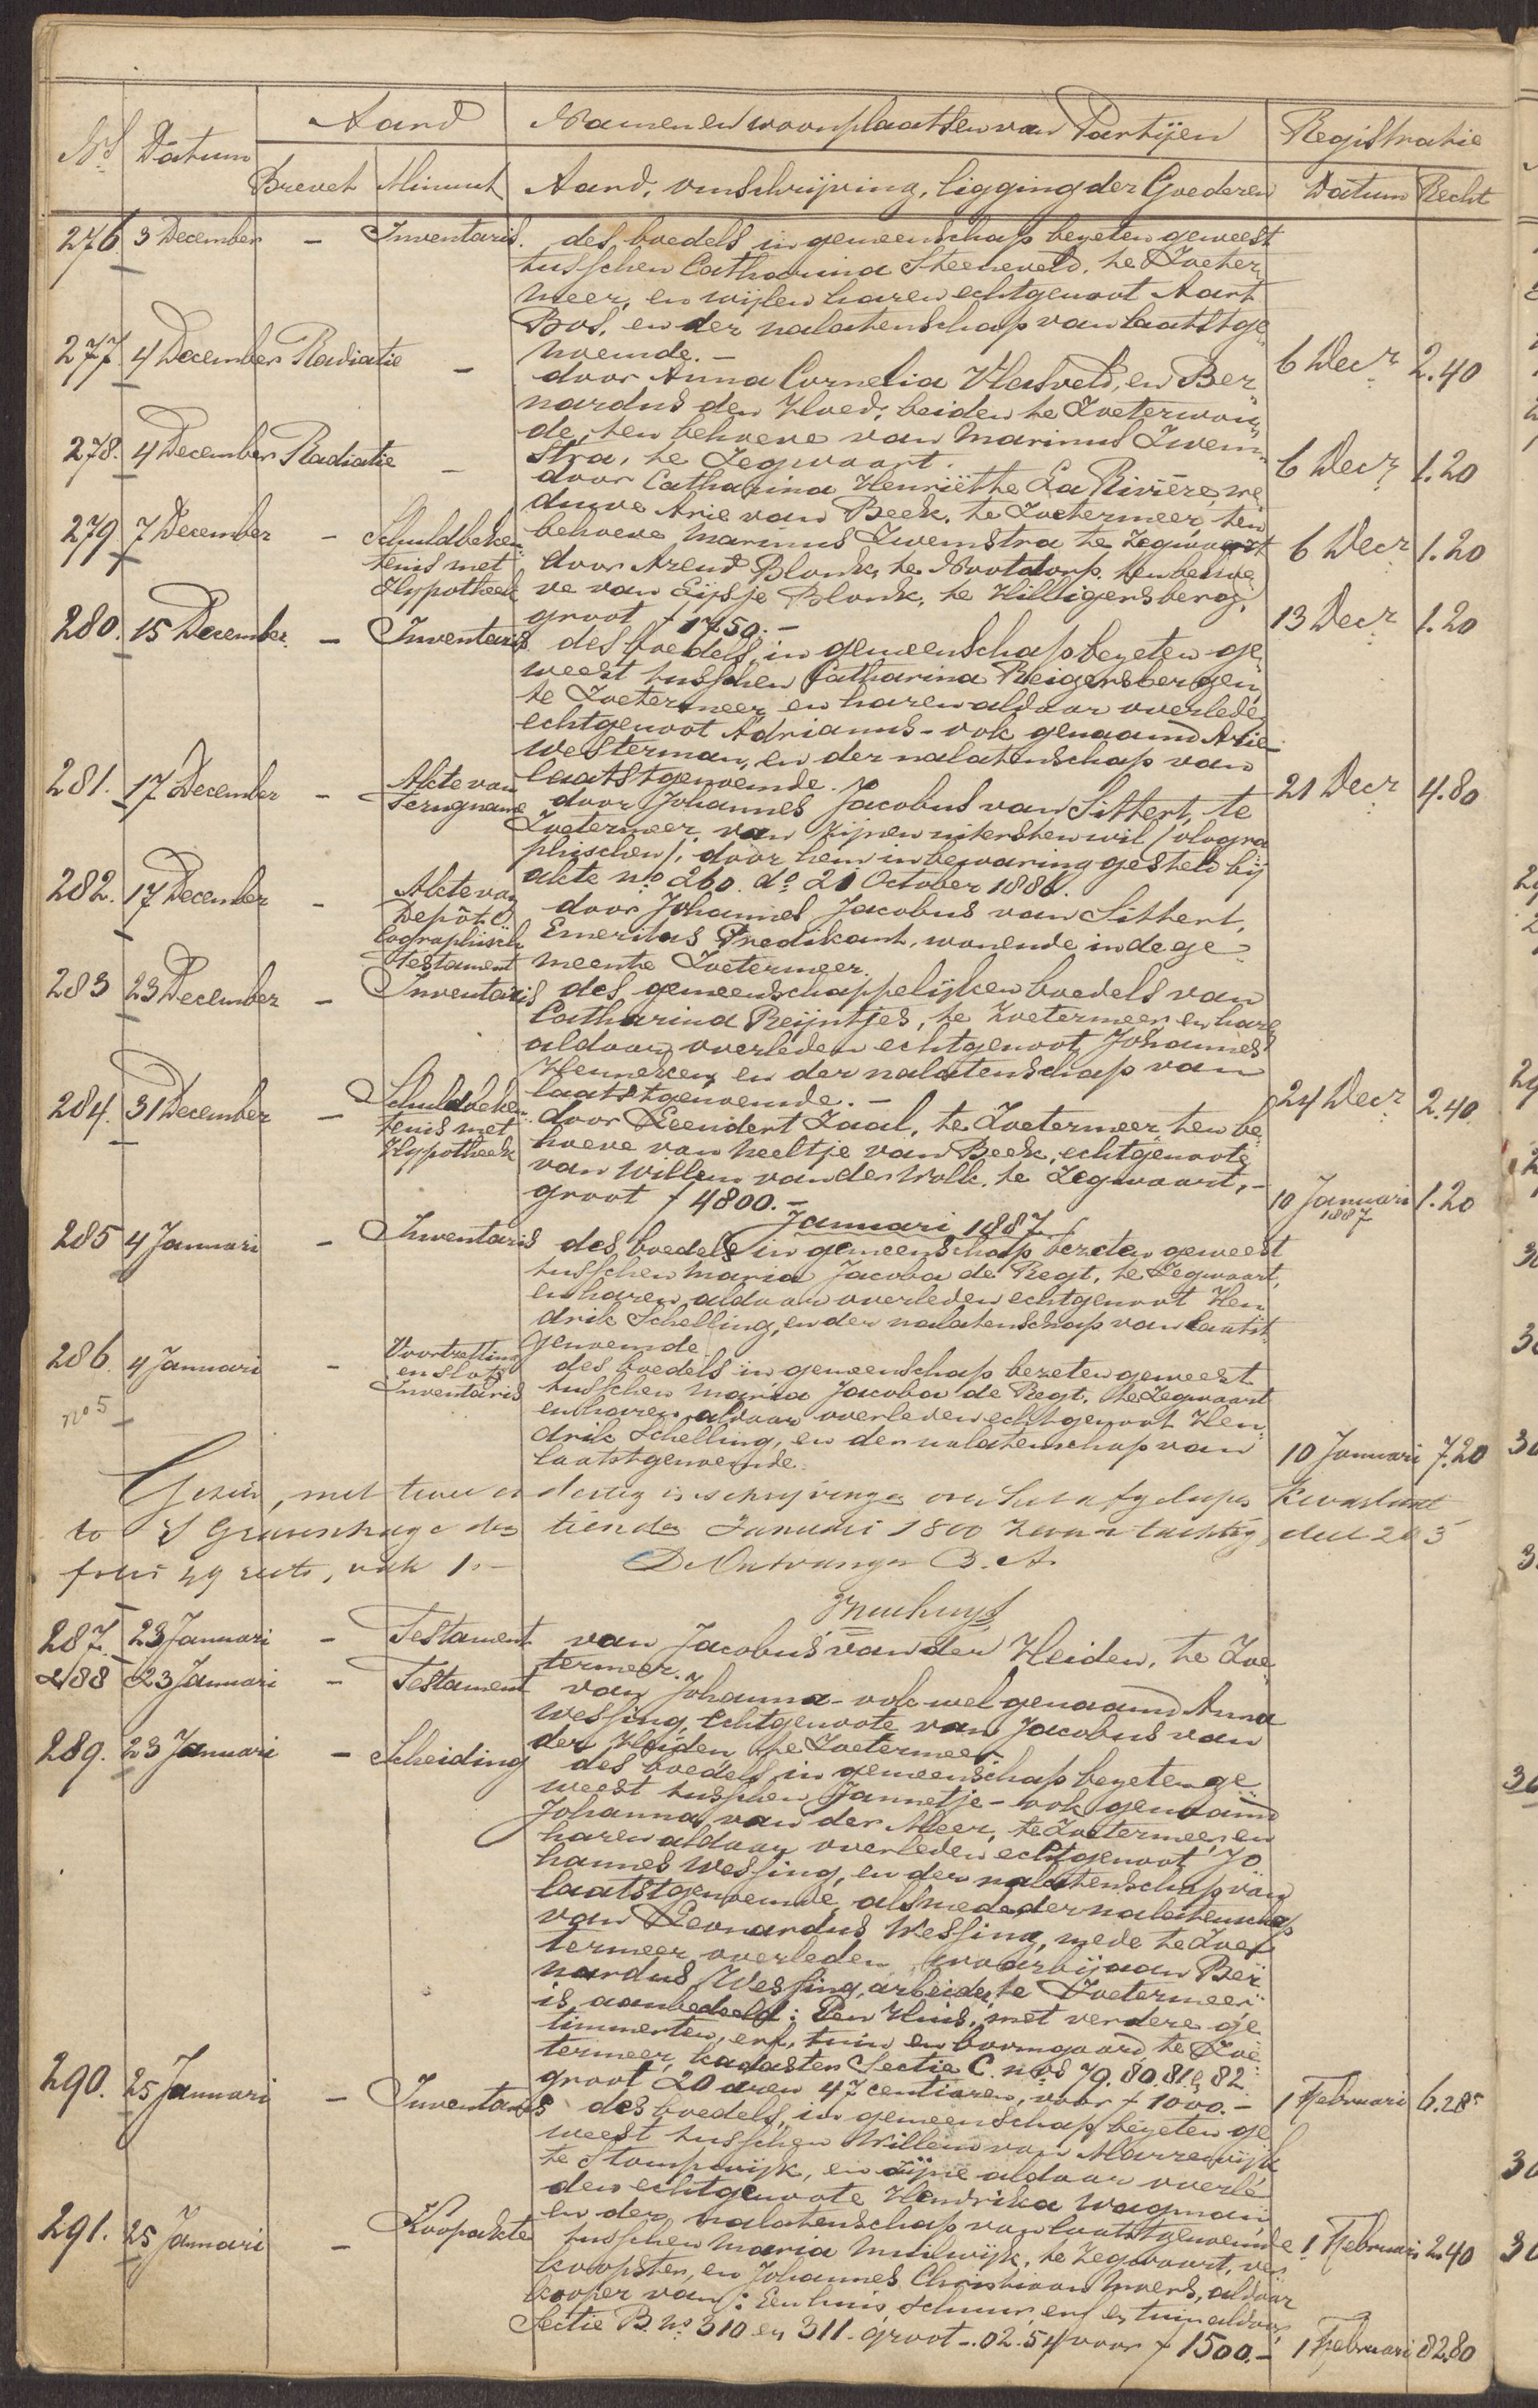 Aard Namen en woonplaatsen van Partijen Registratie
No Datum
Brevet Minuut Aard, omschrijving, ligging der Goederen Datum Recht
276. 3 December - Inventaris. des boedels in gemeenschap bezeten geweest
tusschen Catharina Steeneveld, te Zoeter
meer, en wijlen haren echtgenoot Aart
Bos, en der nalatenschap van laatstge
noemde. - 6 Decr 2.40
277 4 December Radiatie - door Anna Cornelia Vlasveld, en Ber
nardus den Hoed, beiden te Zoeterwou
de, ten behoeve van Marinus Zwem
stra, te Zegwaart. 6 Decr 1.20
278. 4 December Radiatie - door Catharina Henriëtte La Rivière, we
duwe Arie van Beek, te Zoetermeer, ten
behoeve Marinus Zwemstra te Zegwaart 6 Decr 1.20
279 7 December - Schuldbeken
tenis met
Hypotheek door Arend Blonk, te Nootdorp, ten behoe
ve van Eijsje Blonk, te Hilligersberg,
groot f 1750.- 13 Decr 1.20
280. 15 December - Inventaris des boedels, in gemeenschap bezeten ge
weest tusschen Catharina Reigersbergen,
te Zoetermeer, en haren aldaar overlede
echtgenoot Adrianus - ook genaamd Arie -
Westerman, en der nalatenschap van
laatstgenoemde. 21 Decr 4.80
281. 17 December - Akte van
Terugname door Johannes Jacobus van Sittert, te
Zoetermeer, van zijnen uitersten wil (ologra
phischen), door hem in bewaring gesteld bij
akte no 260. do 21 October 1886.
282. 17 December - Akte van
Depôt O
lographisch
Testament door Johannes Jacobus van Sittert,
Emeritus Predikant, wonende in de ge
meente Zoetermeer.
283 23 December - Inventaris des gemeenschappelijken boedels van
Catharina Reijntjes, te Zoetermeer en hare
aldaar overleden echtgenoot Johannes
Hennekens en der nalatenschap van
laatstgenoemde. - 24 Decr 2.40
284. 31 December - Schuldbeken
tenis met
Hypotheek door Leendert Zaal, te Zoetermeer, ten be
hoeve van Neeltje van Beek, echtgenoote
van Willem van der Wolk, te Zegwaart, -
groot f 4800.- 10 Januari 1887 1.20
Januari 1887
285 4 Januari - Inventaris des boedels in gemeenschap bezeten geweest
tusschen Maria Jacoba de Regt, te Zegwaart,
en haren aldaar overleden echtgenoot Hen
drik Schelling, en der nalatenschap van laatst
genoemde.
286. 4 Januari - Voortzetting
en slot
Inventaris des boedels in gemeenschap bezeten geweest
tusschen Maria Jacoba de Regt, te Zegwaart
en haren aldaar overleden echtgenoot Hen
drik Schelling, en der nalatenschap van
laatstgenoemde. 10 Januari 7.20
no 5
Gezien, met twee en dertig inschrijvingen over het afgeloopen kwartaal
te 's Gravenhage den tienden Januari 1800 zeven en tachtig, deel 205
folio 49 recto, vak 1.-
De Ontvanger B. A.
287. 23 Januari - Testament van Jacobus van der Heiden, te Zoe
termeer.
288 23 Januari - Testament van Johanna - ook wel genaamd Anna
Wessing, Echtgenoote van Jacobus van
der Heiden, te Zoetermeer
289. 23 Januari - Scheiding des boedels, in gemeenschap bezeten ge
weest tusschen Jannetje - ook genaamd
Johanna van der Meer, te Zoetermeer, en
haren aldaar overleden echtgenoot Jo
hannes Wessing, en der nalatenschap van
laatstgenoemde, alsmede der nalatenschap
van Leonardus Wessing, mede te Zoe
termeer overleden waarbij aan Ber
nardus Wessing, arbeider, te Zoetermeer
is aanbedeeld: Een Huis, met verdere ge
timmerten, erf, tuin en boomgaard te Zoe
termeer, kadaster Sectie C. nos 79. 80. 81 & 82
groot 20 aren 47 centiaren, voor f 1000.- 1 Februari 6.285
290. 25 Januari - Inventaris des boedels, in gemeenschap bezeten ge
weest tusschen Willem van Marrewijk
te Stompwijk, en zijne aldaar overle
den echtgenoote Hendrika Wagman
en der nalatenschap van laatstgenoemde 1 Februari 2.40
291. 25 Januari - Koopakte tusschen Maria Muilwijk, te Zegwaart, ver
koopster, en Johannes Christiaan Moers, aldaar
kooper van: Een huis, schuur, erf en tuin aldaar,
Sectie B. no 310 en 311. groot -.02.54 voor f 1500.- 1 Februari 82.80